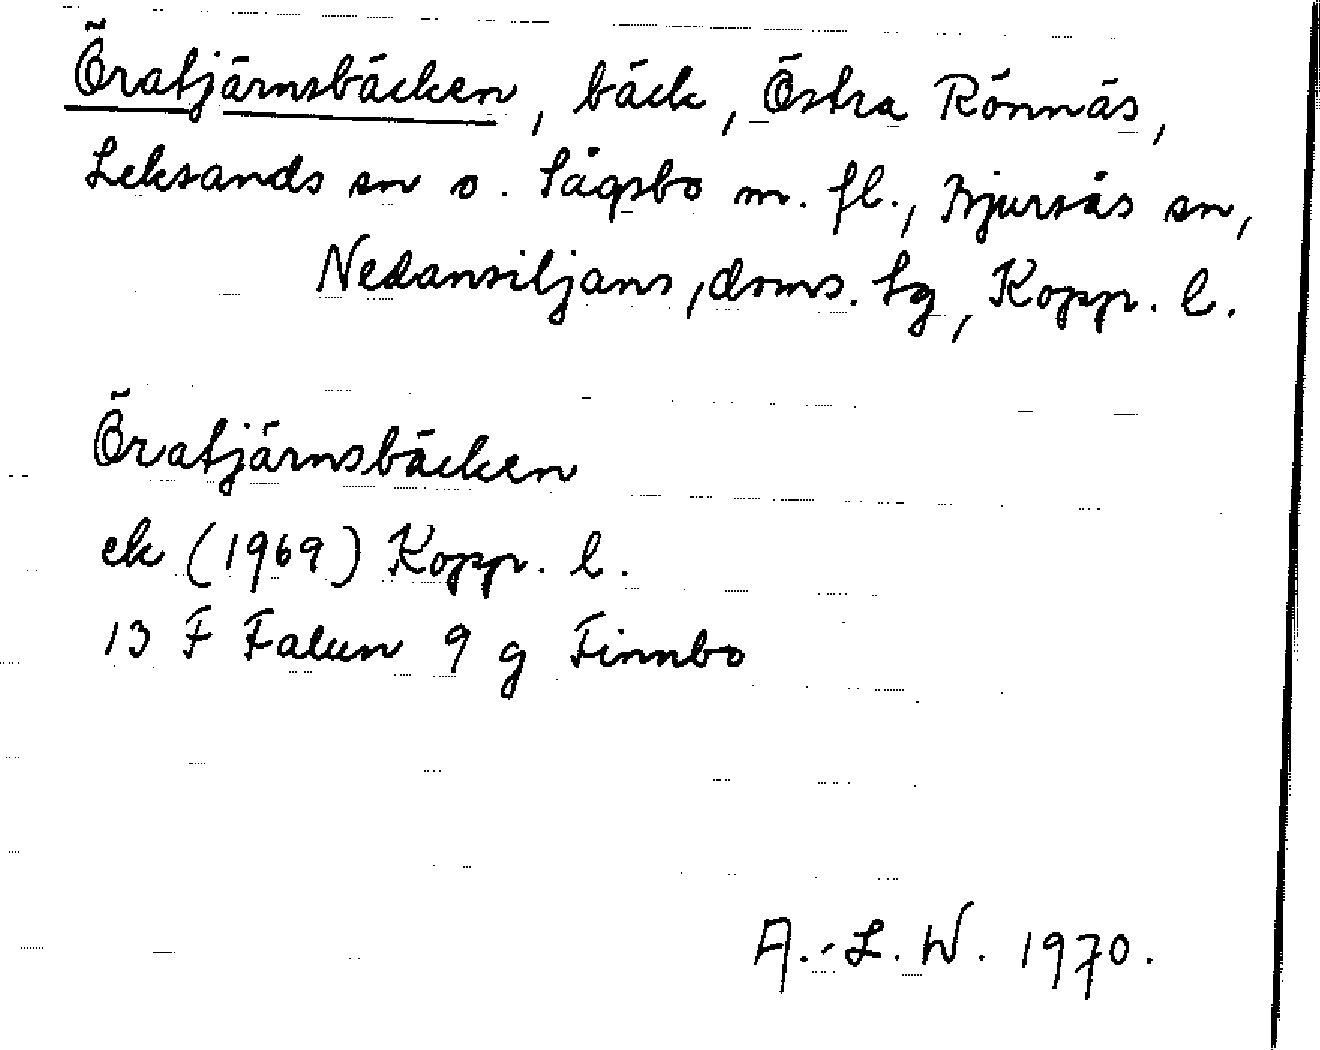 Öratjärnsbäcken, bäck, Östra Rönnäs,
Leksands sn o. Sågsbo m. fl., Bjursås sn,
Nedansiljans, doms. lg, Kopp. l.
Öratjärnsbäcken
ek (1969) Kopp. l.
13 F Falun 9 g Finnbo
A.-L. W. 1970.